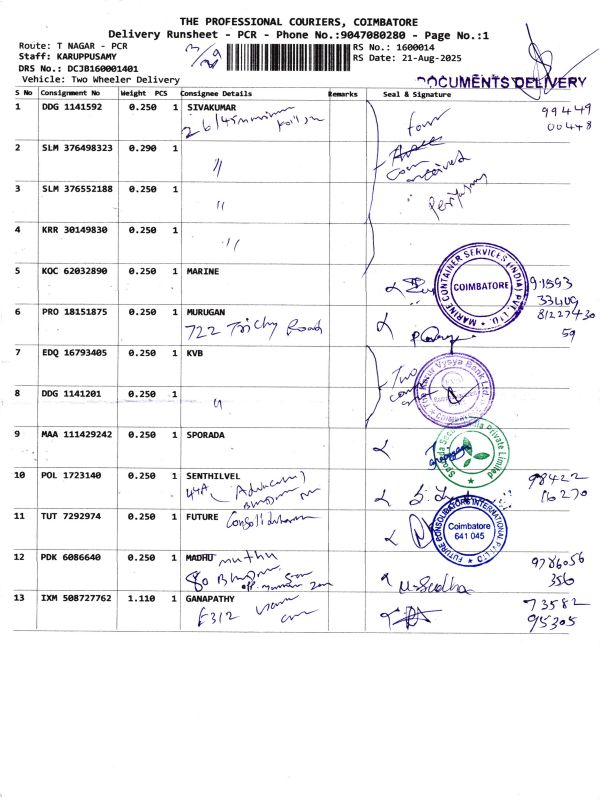 THE PROFESSIONAL COURIERS, COIMBATORE
Delivery Runsheet - PCR - Phone No.:9047080280 - Page No.:1
Route: T NAGAR - PCR
Staff: KARUPPUSAMY
DRS No.: DCJB160001401
Vehicle: Two Wheeler Delivery
RS No.: 1600014
RS Date: 21-Aug-2025
DOCUMENTS DELIVERY
S No Consignment No Weight PCS Consignee Details Remarks Seal & Signature
1 DDG 1141592 0.250 1 SIVAKUMAR four 99449
00448
2 SLM 376498323 0.290 1 〃
received
3 SLM 376552188 0.250 1 〃
4 KRR 30149830 0.250 1 〃
5 KOC 62032890 0.250 1 MARINE
MARINE CONTAINER SERVICES (INDIA) PVT. LTD.
COIMBATORE
33409
6 PRO 18151875 0.250 1 MURUGAN
722 Trichy Road
81227430
59
7 EDQ 16793405 0.250 1 KVB Two
The Karur Vysya Bank Ltd.
8 DDG 1141201 0.250 1 〃
9 MAA 111429242 0.250 1 SPORADA
Private Limited
10 POL 1723140 0.250 1 SENTHILVEL 98422
44A (Advocate) 16270
11 TUT 7292974 0.250 1 FUTURE
FUTURE CONSOLIDATORS INTERNATIONAL PVT LTD
Coimbatore
641 045
12 PDK 6086640 0.250 1 MADHU muthu 9786056
80 356
M. Sudha
13 IXM 508727762 1.110 1 GANAPATHY 73582
E312 95305